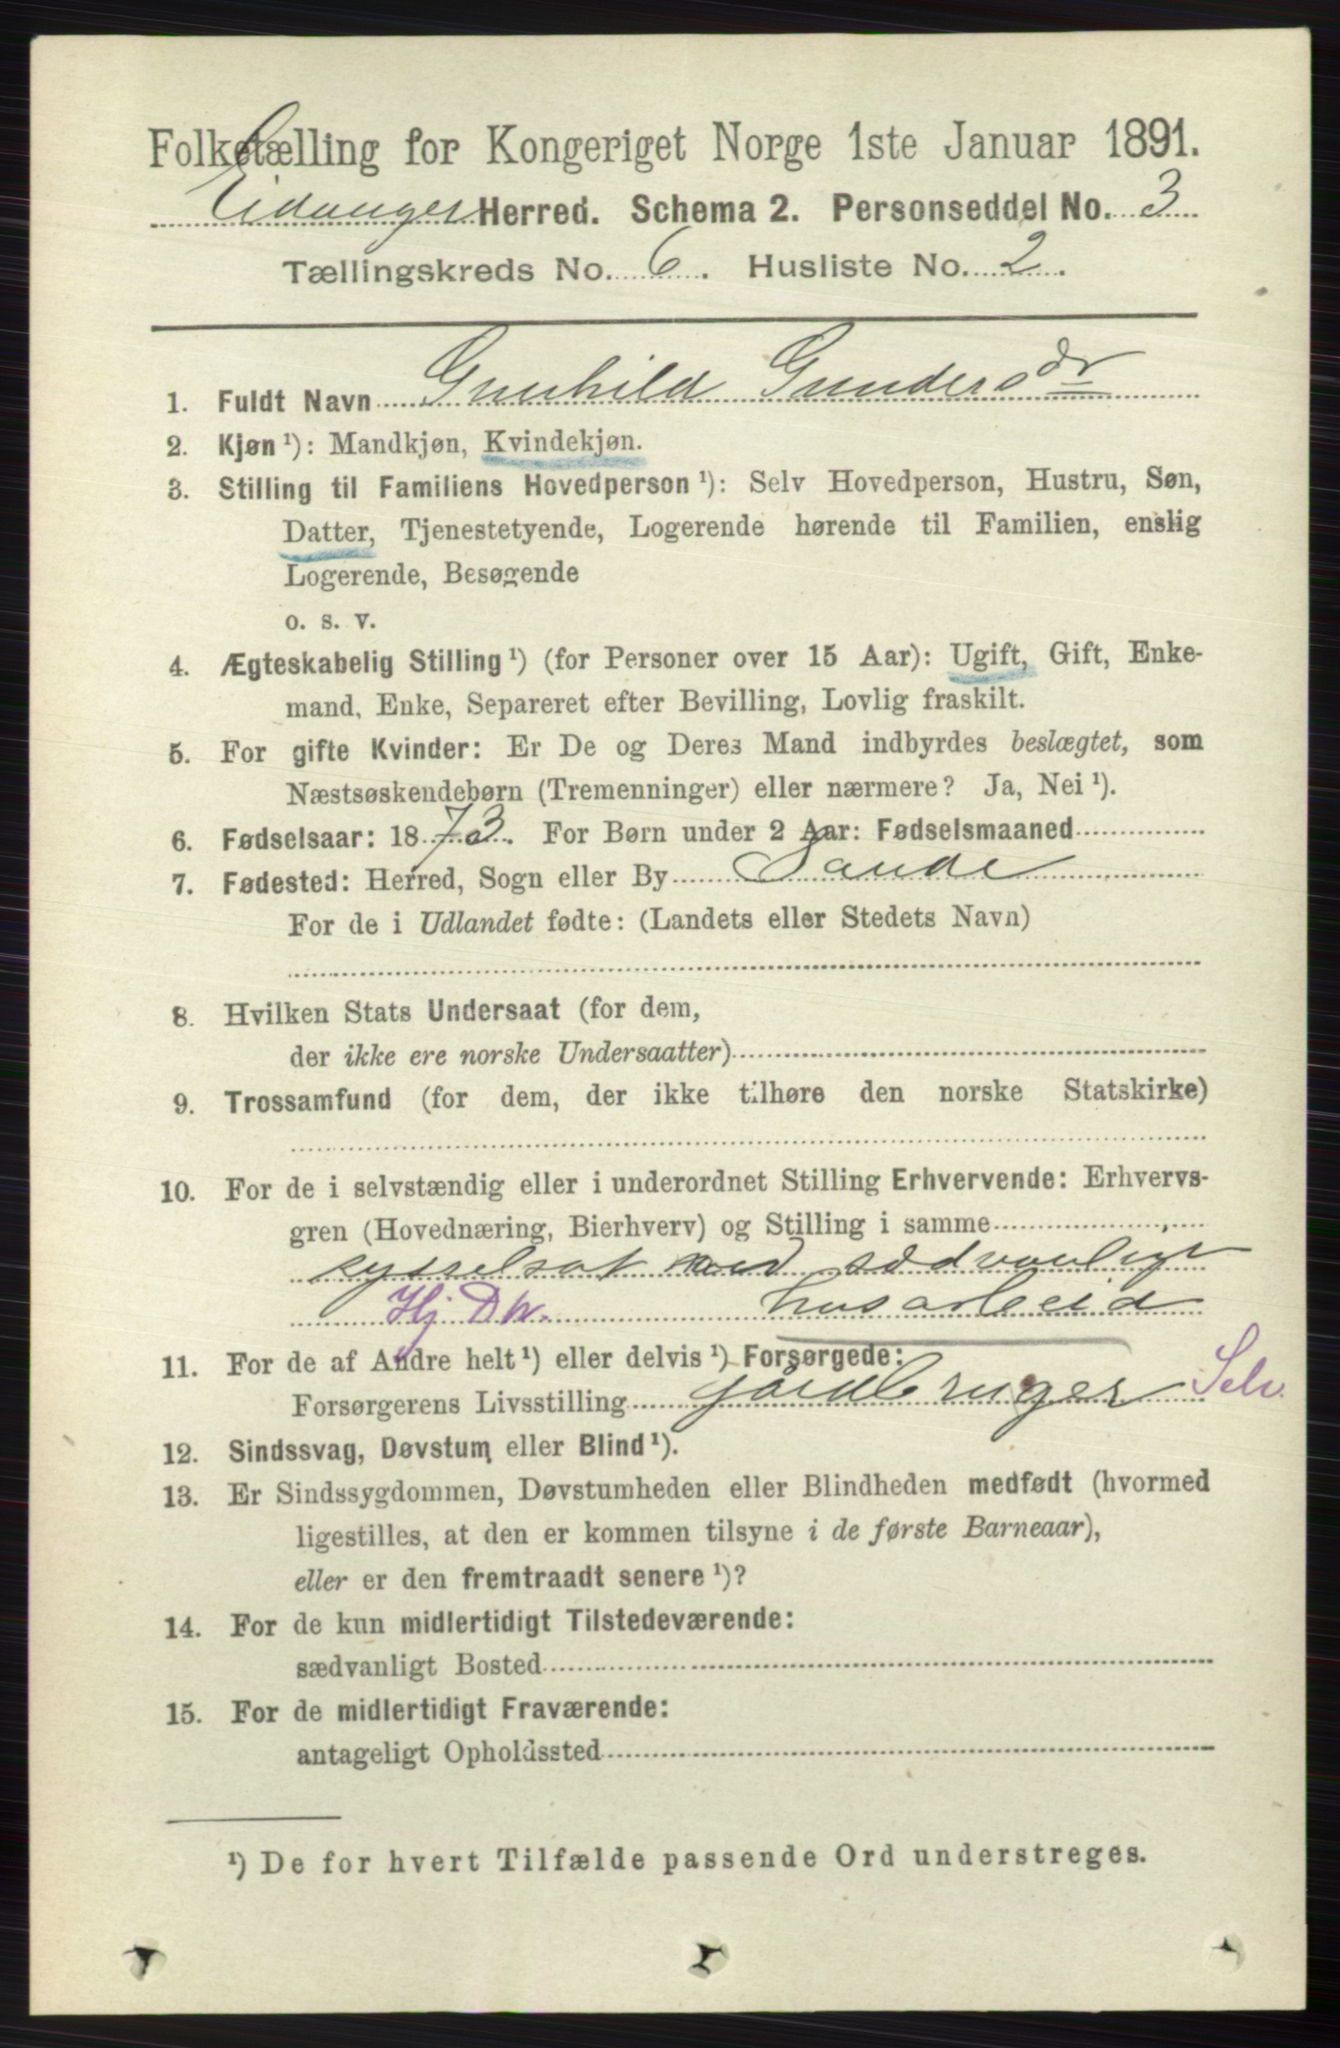 Folketælling for Kongeriget Norge 1ste Januar 1891.
Eidanger Herred. Schema 2. Personseddel No. 3
Tællingskreds No. 6. Husliste No. 2.
1. Fuldt Navn Gunhild Gundersdr
2. Kjøn ¹): Mandkjøn, Kvindekjøn.
3. Stilling til Familiens Hovedperson ¹): Selv Hovedperson, Hustru, Søn,
Datter, Tjenestetyende, Logerende hørende til Familien, enslig
Logerende, Besøgende
o. s. v.
4. Ægteskabelig Stilling ¹) (for Personer over 15 Aar): Ugift, Gift, Enke-
mand, Enke, Separeret efter Bevilling, Lovlig fraskilt.
5. For gifte Kvinder: Er De og Deres Mand indbyrdes beslægtet, som
Næstsøskendebørn (Tremenninger) eller nærmere? Ja, Nei ¹).
6. Fødselsaar: 1873. For Børn under 2 Aar: Fødselsmaaned
7. Fødested: Herred, Sogn eller By Sande
For de i Udlandet fødte: (Landets eller Stedets Navn)
8. Hvilken Stats Undersaat (for dem,
der ikke ere norske Undersaatter)
9. Trossamfund (for dem, der ikke tilhøre den norske Statskirke)
10. For de i selvstændig eller i underordnet Stilling Erhvervende: Erhvervs-
gren (Hovednæring, Bierhverv) og Stilling i samme
sysselsat med sædvanligt
Hj. Dtr. husarbeid
11. For de af Andre helt ¹) eller delvis ¹) Forsørgede:
Forsørgerens Livsstilling gårdbruger Selv.
12. Sindssvag, Døvstum eller Blind ¹).
13. Er Sindssygdommen, Døvstumheden eller Blindheden medfødt (hvormed
ligestilles, at den er kommen tilsyne i de første Barneaar),
eller er den fremtraadt senere ¹)?
14. For de kun midlertidigt Tilstedeværende:
sædvanligt Bosted
15. For de midlertidigt Fraværende:
antageligt Opholdssted
¹) De for hvert Tilfælde passende Ord understreges.